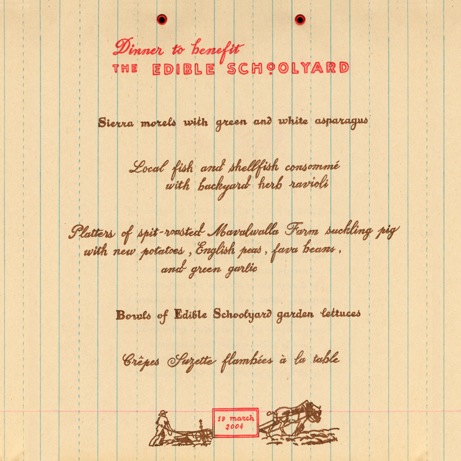 Dinner to benefit
THE EDIBLE SCHOOLYARD
Sierra morels with green and white asparagus
Local fish and shellfish consommé
with backyard herb ravioli
Platters of spit-roasted Mavalwalla Farm suckling pig
with new potatoes, English peas, fava beans,
and green garlic
Bowls of Edible Schoolyard garden lettuces
Crêpes Suzette flambées à la table
19 march
2004